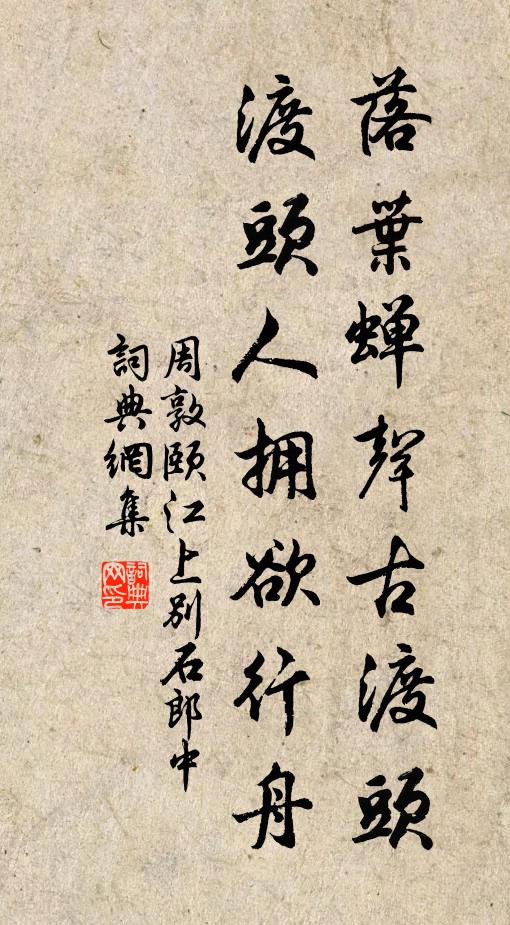 落葉蟬聲古渡頭
渡頭人拥欲行舟
周敦頤江上別石郎中
詞典網集
詞典网印